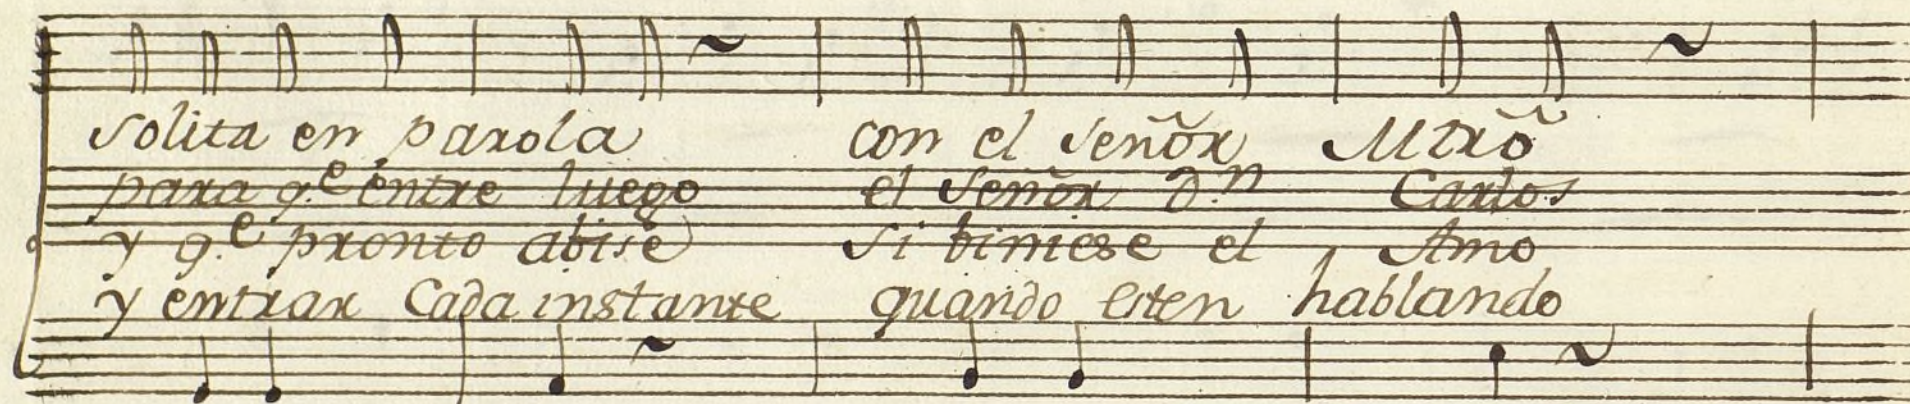 solita en parola con el señor Mtrõ
para q.e entre luego el señor D.n Carlos
y q.e pronto abise si biniese el Amo
y entrar Cada instante quando esten hablando